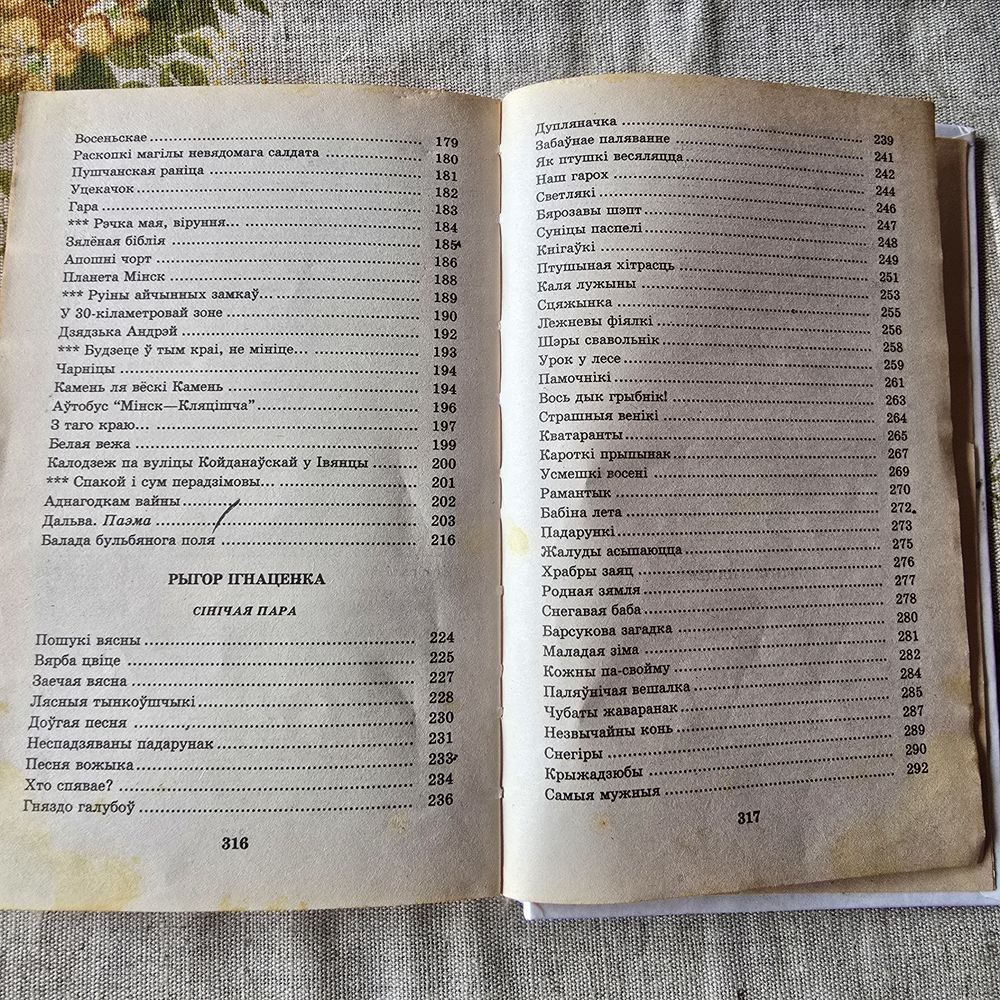 Восеньскае ... 179
Раскопкі магілы невядомага салдата ... 180
Пушчанская раніца ... 181
Уцекачок ... 182
Гара ... 183
*** Рэчка мая, віруння... ... 184
Зялёная біблія ... 185
Апошні чорт ... 186
Планета Мінск ... 188
*** Руіны айчынных замкаў... ... 189
У 30-кіламетровай зоне ... 190
Дзядзька Андрэй ... 192
*** Будзеце ў тым краі, не мініце... ... 193
Чарніцы ... 194
Камень ля вёскі Камень ... 194
Аўтобус “Мінск—Кляцішча” ... 196
З таго краю... ... 197
Белая вежа ... 199
Калодзеж па вуліцы Койданаўскай у Івянцы ... 200
*** Спакой і сум перадзімовы... ... 201
Аднагодкам вайны ... 202
Дальва. Паэма ... 203
Балада бульбянога поля ... 216
РЫГОР ІГНАЦЕНКА
СІНІЧАЯ ПАРА
Пошукі вясны ... 224
Вярба цвіце ... 225
Заечая вясна ... 227
Лясныя тынкоўшчыкі ... 228
Доўгая песня ... 230
Неспадзяваны падарунак ... 231
Песня вожыка ... 233
Хто спявае? ... 234
Гняздо галубоў ... 236
316
Дупляначка ... 239
Забаўнае паляванне ... 241
Як птушкі весяляцца ... 242
Наш гарох ... 244
Светлякі ... 246
Бярозавы шэпт ... 247
Суніцы паспелі ... 248
Кнігаўкі ... 249
Птушыная хітрасць ... 251
Каля лужыны ... 253
Сцяжынка ... 255
Лежневы фіялкі ... 256
Шэры свавольнік ... 258
Урок у лесе ... 259
Памочнікі ... 261
Вось дык грыбнік! ... 263
Страшныя венікі ... 264
Кватаранты ... 265
Кароткі прыпынак ... 267
Усмешкі восені ... 269
Рамантык ... 270
Бабіна лета ... 272
Падарункі ... 273
Жалуды асыпаюцца ... 275
Храбры заяц ... 276
Родная зямля ... 277
Снегавая баба ... 278
Барсукова загадка ... 280
Маладая зіма ... 281
Кожны па-свойму ... 282
Паляўнічая вешалка ... 284
Чубаты жаваранак ... 285
Незвычайны конь ... 287
Снегіры ... 289
Крыжадзюбы ... 290
Самыя мужныя ... 292
317